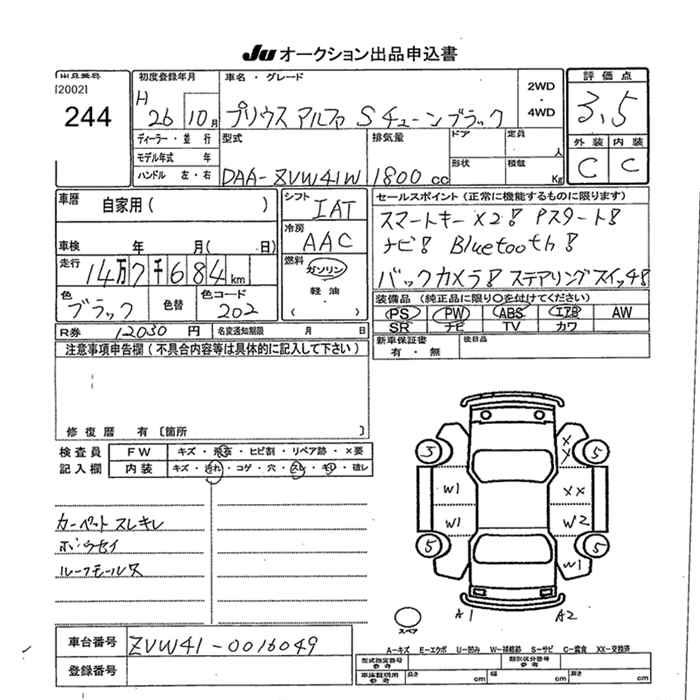 Ju オークション出品申込書
出品番号
[2002]
244
初度登録年月
H 26 10月
車名・グレード
プリウス アルファ S チューンブラック
2WD
・
4WD
評価点
3.5
外装 内装
C C
ディーラー・並行
モデル年式 年
ハンドル 左・右
型式
DAA-ZVW41W
排気量
1800 cc
ドア
形状
定員 人
積載 Kg
車歴 自家用( )
車検 年 月( 日)
走行 14万7千684km
色 ブラック 色替 色コード 202
R券 12030円 名変通知期限 月 日
シフト IAT
冷房 AAC
燃料
ガソリン
・
軽油
( )
セールスポイント(正常に機能するものに限ります)
スマートキーX2! Pスタート!
ナビ! Bluetooth!
バックカメラ! ステアリングスイッチ!
装備品(純正品に限り○を付けてください)
PS PW ABS エアB AW
SR ナビ TV カワ
新車保証書
有・無
後日品
注意事項申告欄(不具合内容等は具体的に記入して下さい)
修復歴 有〔箇所 〕
検査員
記入欄
FW キズ・飛石・ヒビ割・リペア跡・×要
内装 キズ・汚れ・コゲ・穴・スレ・キレ・破レ
カーペットスレキレ
ルーフモールス
3 5
W1 XX
W1 W2
5 W1 5
A1 A2
スペア
A-キズ E-エクボ U-凹み W-補修跡 S-サビ C-腐食 XX-交換済
車台番号 ZVW41-0016049
登録番号
型式指定番号
参考
類別区分番号
参考
車体証明用
参考
長さ cm 幅 cm 高さ cm